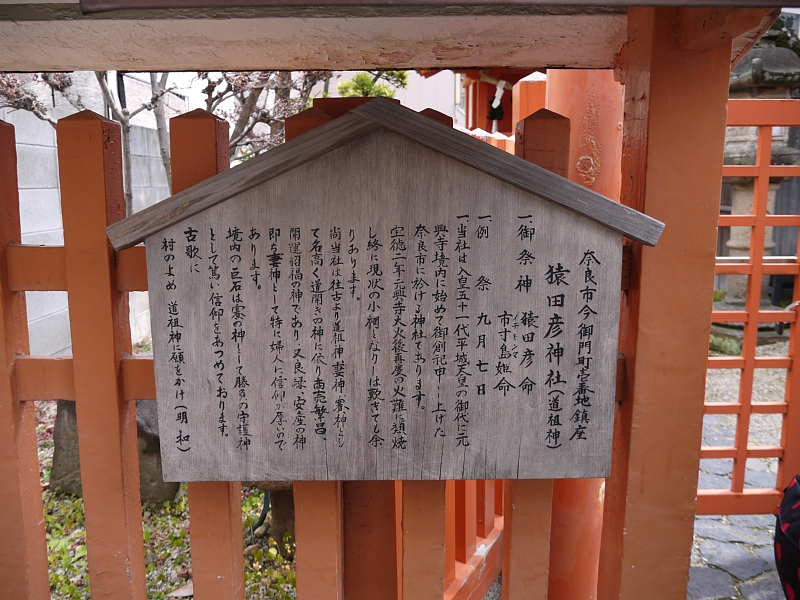 奈良市今御門町壱番地鎮座
猿田彦神社(道祖神)
一、御祭神 猿田彦命
市寸島姫命
イチキシマ
一、例 祭 九月七日
一、当社は人皇五十一代平城天皇の御代に元
興寺境内に始めて御創記申し上げた
奈良市に於ける神社であります。
宝徳二年元興寺大火後再度の火難に類焼
し終に現状の小祠となりしは歎きても余
りあります。
尚当社は往古より道祖神、妻神、賽神とし
て名高く道開きの神に依り商売繁昌、
開運招福の神であり又良縁、安産の神
即ち妻神として特に婦人に信仰が厚いので
あります。
境内の巨石は賽の神として勝負の守護神
として篤い信仰をあつめております。
古歌に
村のよめ 道祖神に願をかけ(明和)